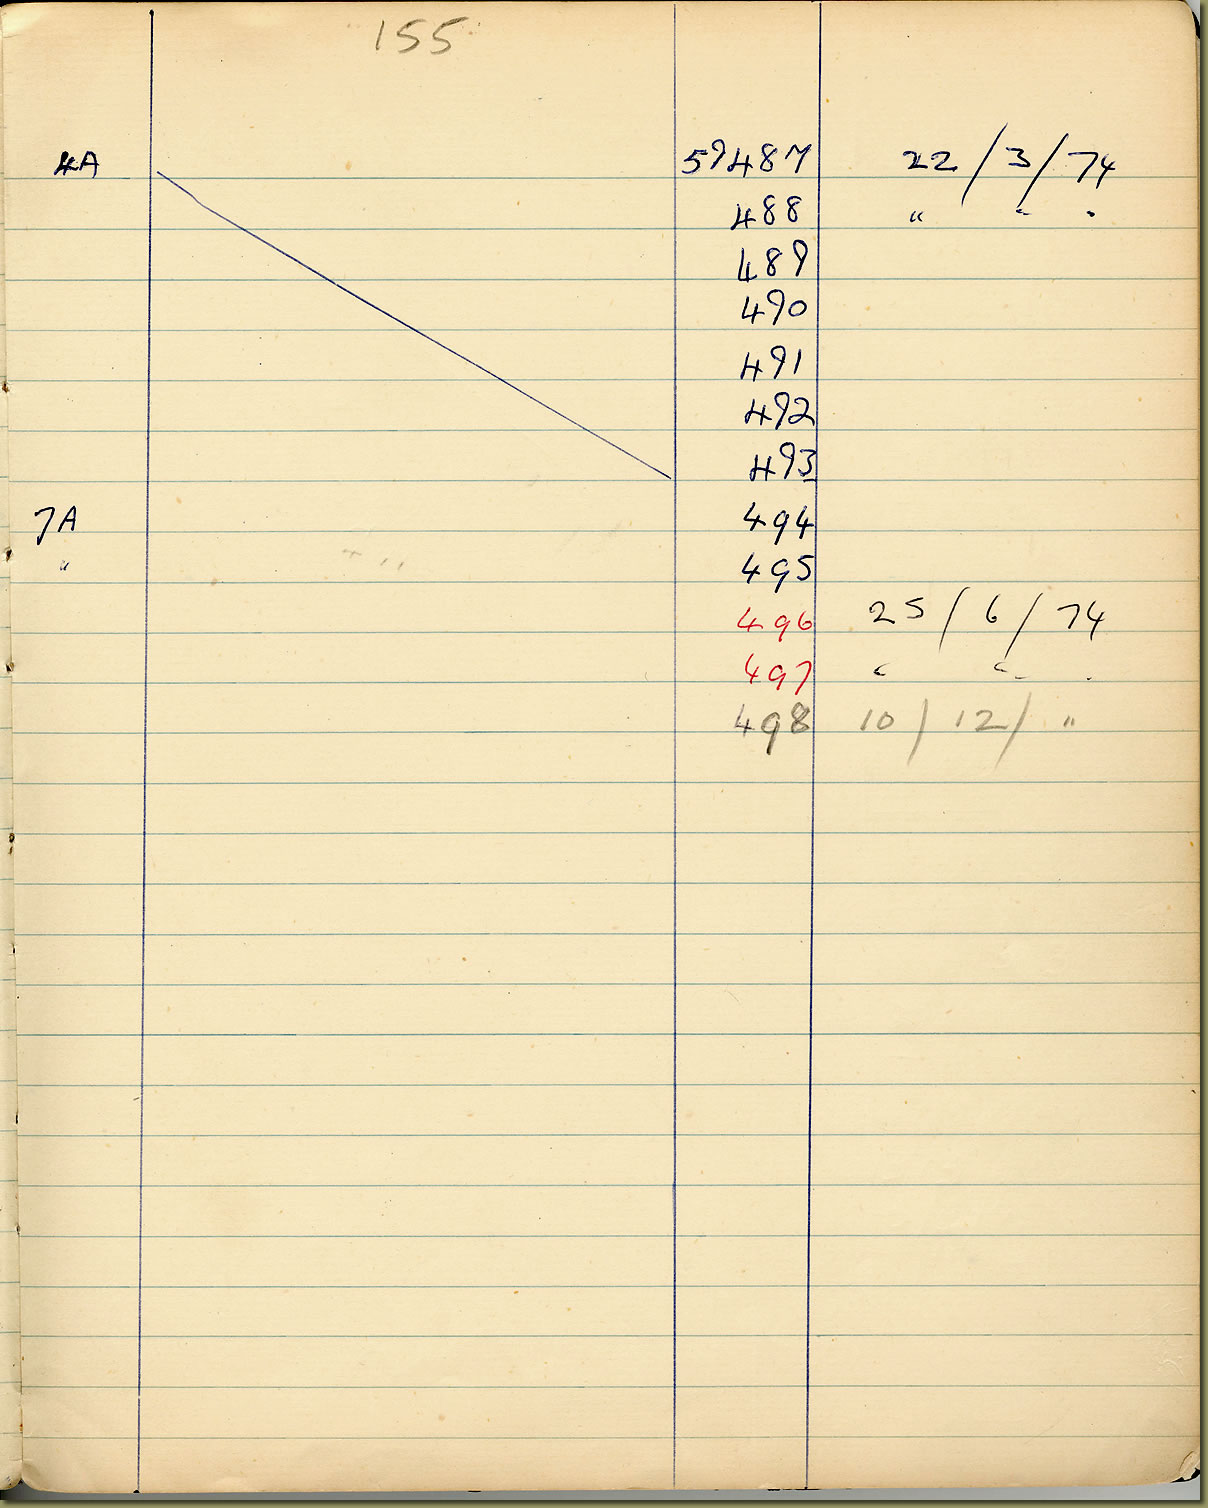 155
4A 59487 22/3/74
488 " " "
489
490
491
492
493
7A 494
" 495
496 25/6/74
497 " " "
498 10/12/ "